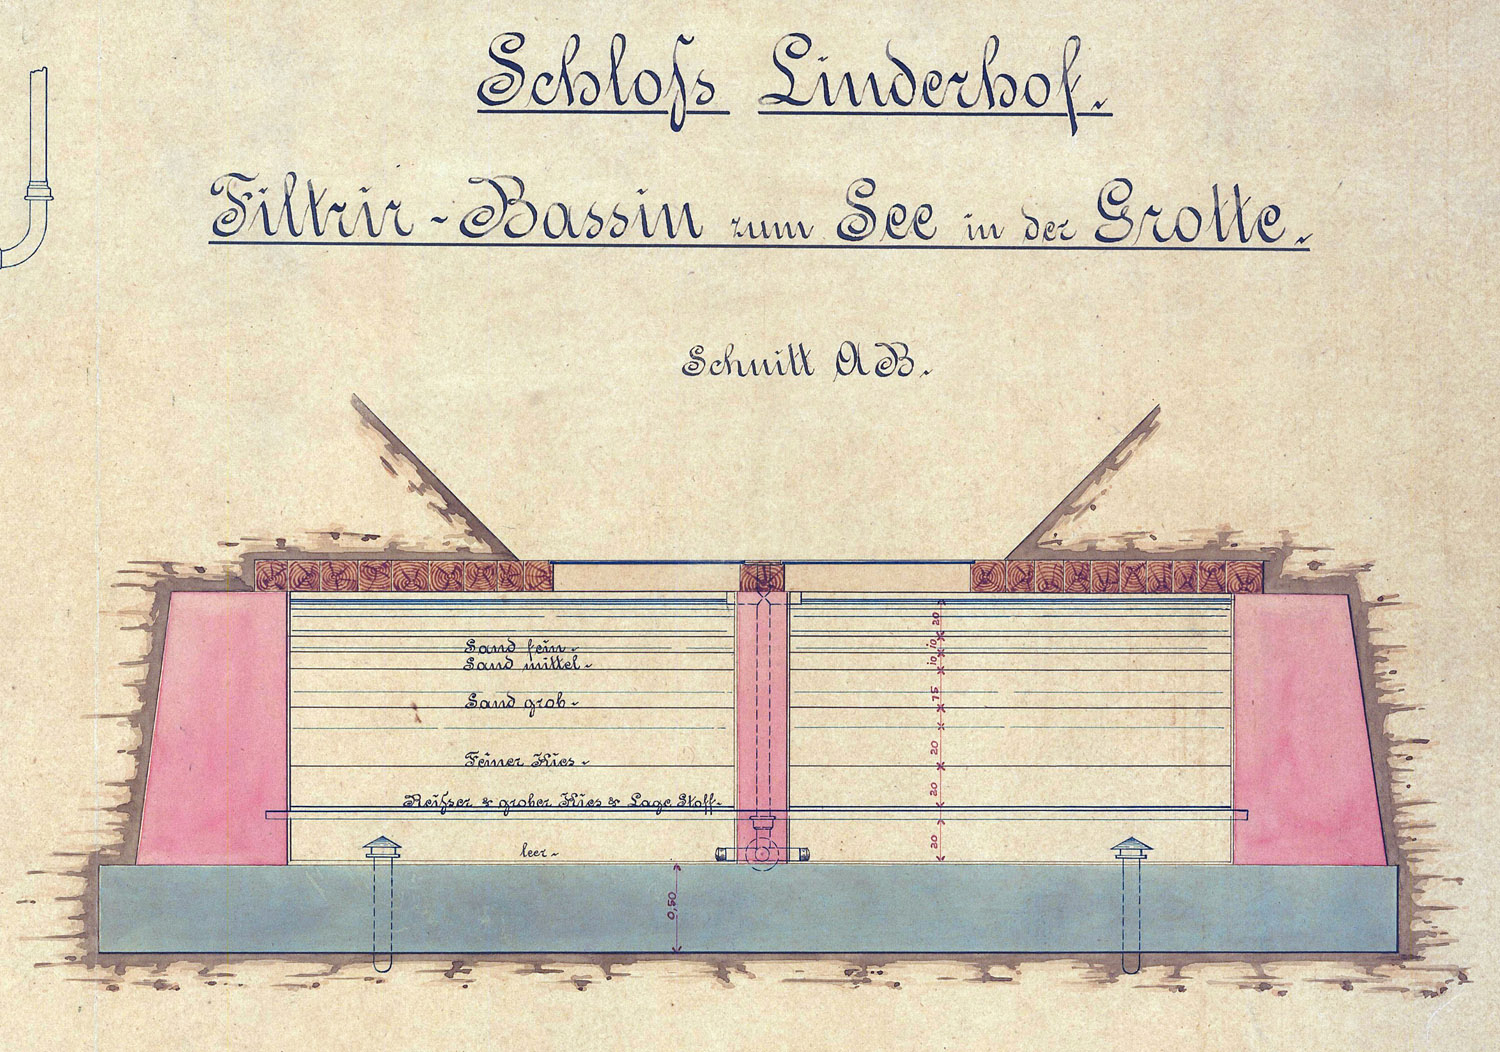 Schloſs Linderhof.
Filtrir-Bassin zum See in der Grotte.
Schnitt AB.
Sand fein.
Sand mittel.
Sand grob.
Feiner Kies.
& grober Kies & Lage Stoff.
leer.
20
10
10
15
20
20
20
0,50